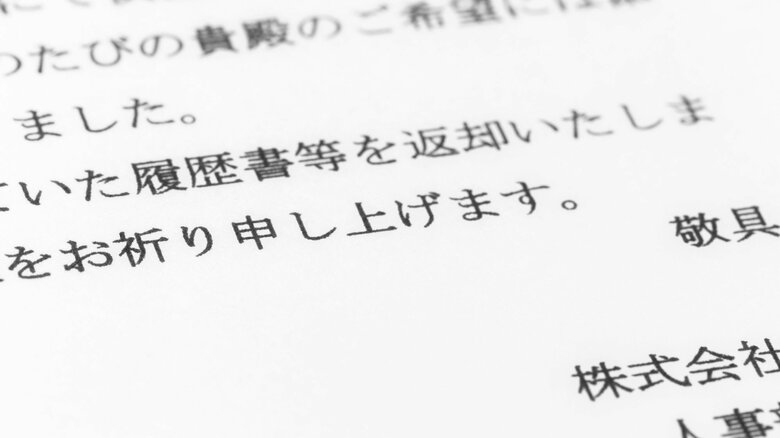 ったびの貴殿のご希望には
ました。
いた履歴書等を返却いたしま
をお祈り申し上げます。
敬具
株式会社
人事